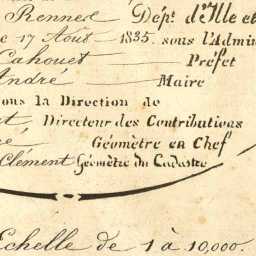 Rennes Dépt. d'Ille et
17 Août 1835. sous l'Admin
Cahouet Préfet
André Maire
sous la Direction de
Directeur des Contributions
Géomètre en Chef
Clément Géomètre du Cadastre
Echelle de 1 à 10,000.